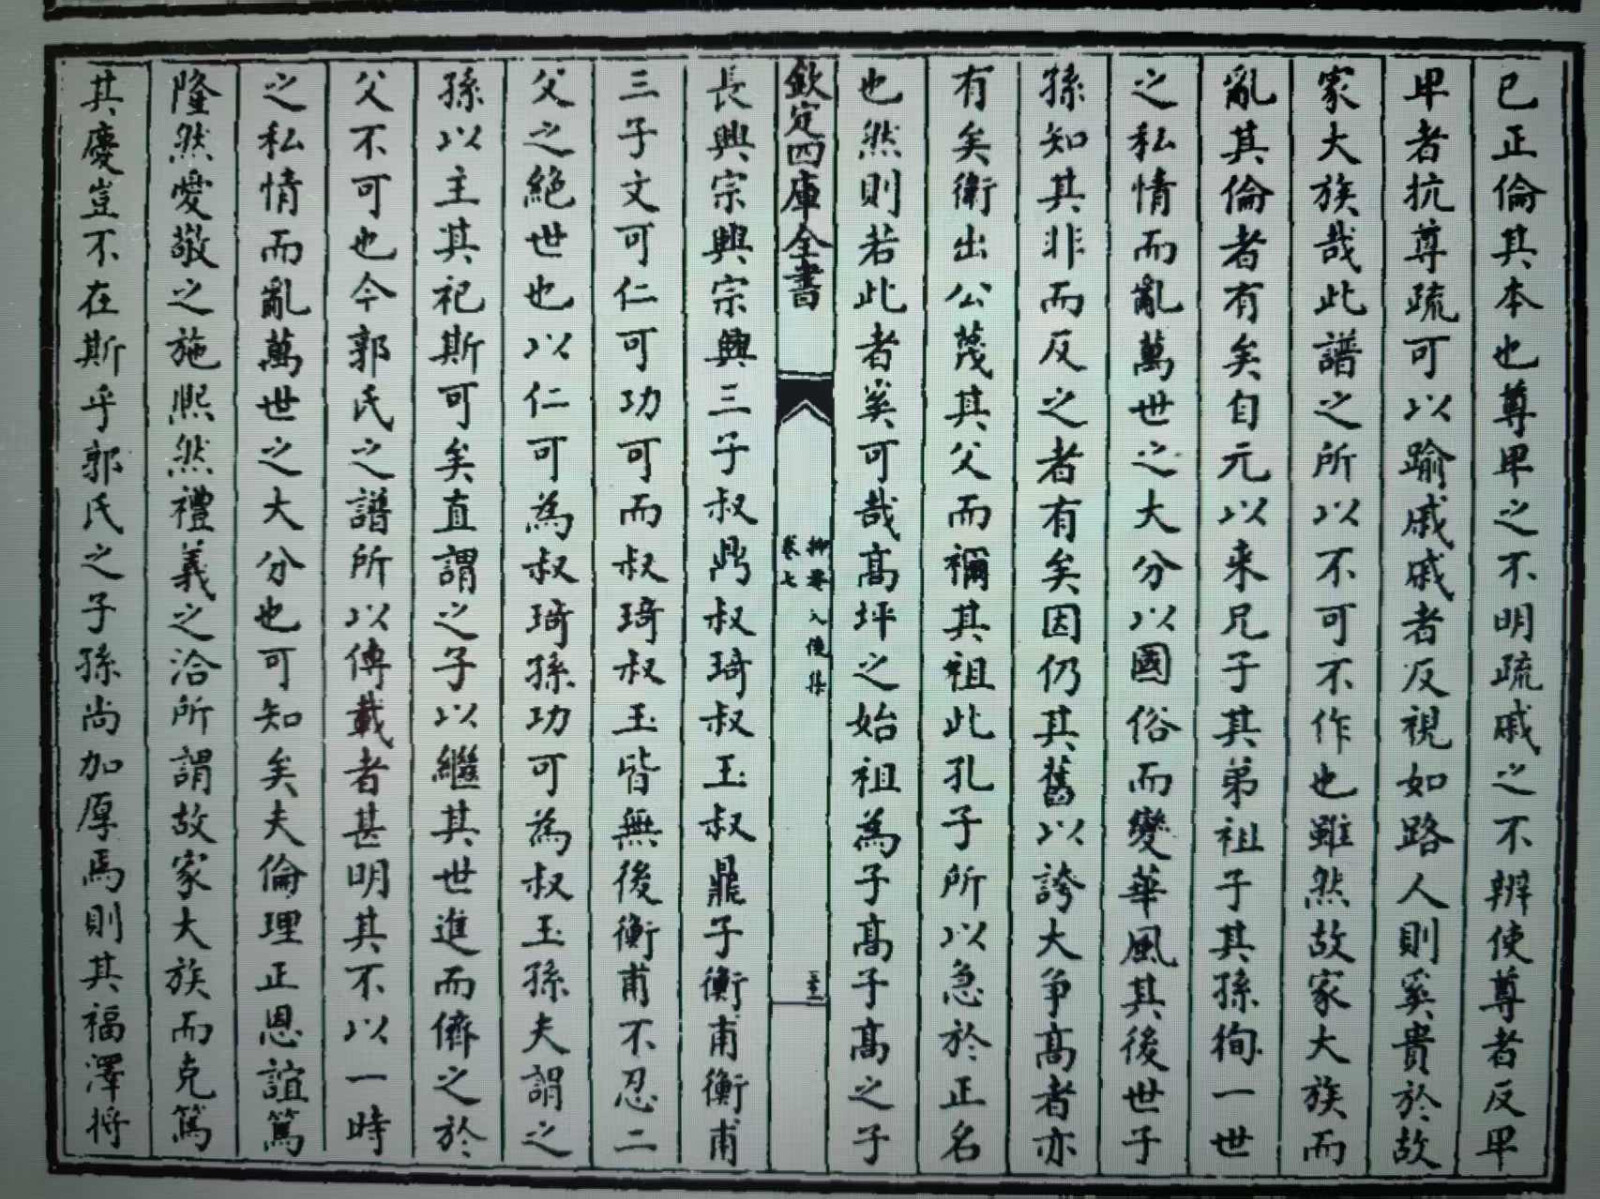 已正倫其本也尊卑之不明疏戚之不辨使尊者反卑
卑者抗尊疏可以踰戚戚者反視如路人則奚貴於故
家大族哉此譜之所以不可不作也雖然故家大族而
亂其倫者有矣自元以来兄子其弟祖子其孫徇一世
之私情而亂萬世之大分以國俗而變華風其後世子
孫知其非而反之者有矣因仍其舊以誇大争高者亦
有矣衛出公薎其父而禰其祖此孔子所以急於正名
也然則若此者奚可哉髙坪之始祖為子髙子髙之子
欽定四庫全書
抑菴文後集
卷七
長興宗興宗興三子叔鼎叔琦叔玉叔鼎子衡甫衡甫
三子文可仁可功可而叔琦叔玉皆無後衡甫不忍二
父之絕世也以仁可為叔琦孫功可為叔玉孫夫謂之
孫以主其祀斯可矣直謂之子以繼其世進而儕之於
父不可也今郭氏之譜所以傳載者甚明其不以一時
之私情而亂萬世之大分也可知矣夫倫理正恩誼篤
隆然愛敬之施熙然禮義之洽所謂故家大族而克篤
其慶豈不在斯乎郭氏之子孫尚加厚焉則其福澤將